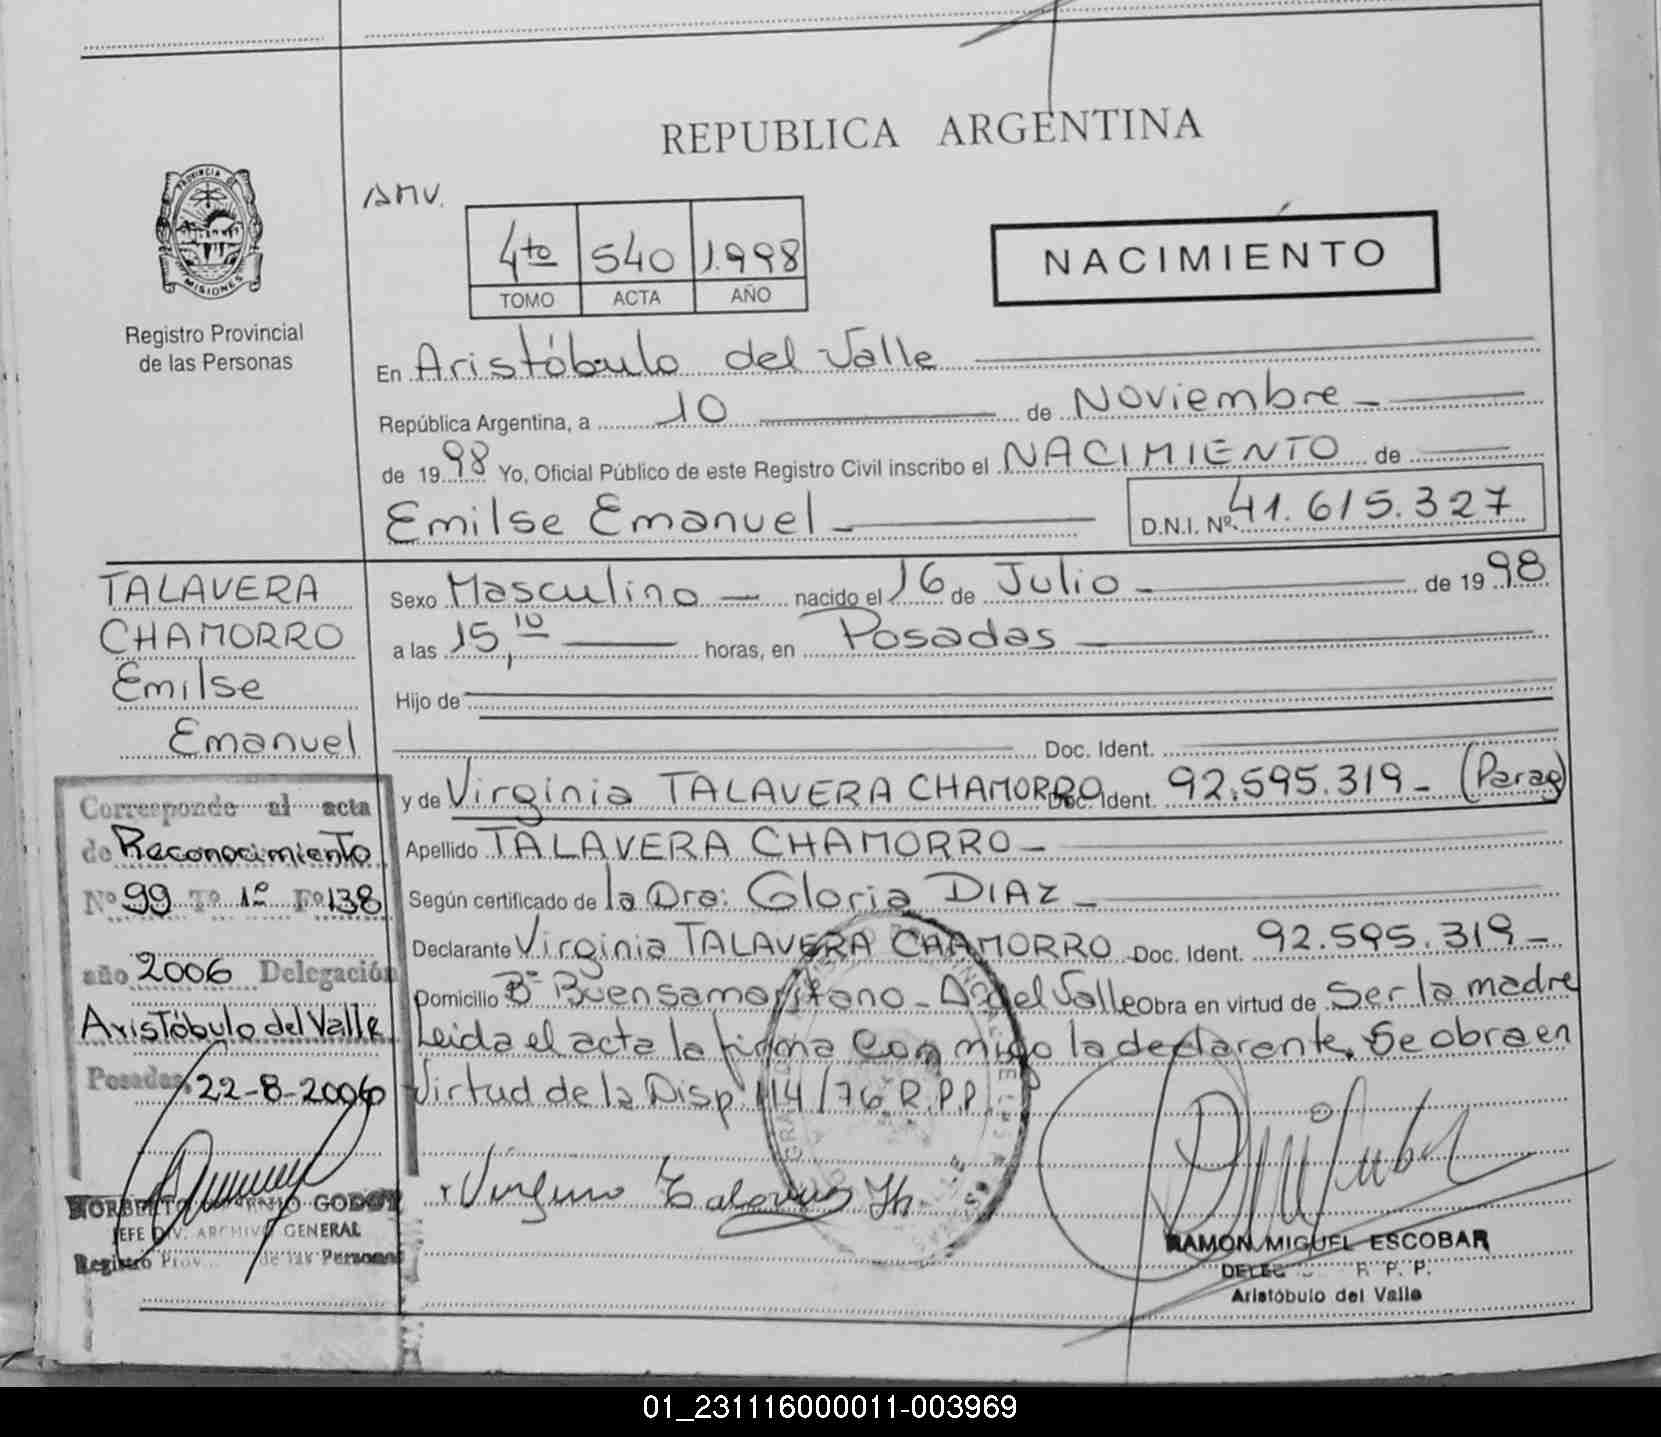 REPUBLICA ARGENTINA
PROVINCIA DE
MISIONES
Registro Provincial
de las Personas
AMV.
4to 540 1.998
TOMO ACTA AÑO
NACIMIENTO
En Aristóbulo del Valle
República Argentina, a 10 de Noviembre
de 1998 Yo, Oficial Público de este Registro Civil inscribo el NACIMIENTO de
Emilse Emanuel D.N.I. Nº 41.615.327
TALAVERA
CHAMORRO
Emilse
Emanuel
Sexo Masculino nacido el 16 de Julio de 1998
a las 15,10 horas, en Posadas
Hijo de
Doc. Ident.
y de Virginia TALAVERA CHAMORRO Doc. Ident. 92.595.319 (Parag)
Apellido TALAVERA CHAMORRO
Según certificado de la Dra: Gloria DIAZ
Declarante Virginia TALAVERA CHAMORRO Doc. Ident. 92.595.319
Domicilio Bº Buensamaritano - A. del Valle Obra en virtud de Ser la madre
Leida el acta la firma conmigo la declarante. Se obra en
Virtud de la Disp 114/76 R.P.P.
Corresponde al acta
de Reconocimiento
Nº 99 Tº 1º Fº 138
año 2006 Delegación
Aristóbulo del Valle
Posadas, 22-8-2006
NORBERTO GODOY
JEFE DIV. ARCHIVO GENERAL
Registro Prov. de las Personas
Virginia Talavera Ch.
RAMON MIGUEL ESCOBAR
R. P. P.
Aristóbulo del Valle
01_231116000011-003969